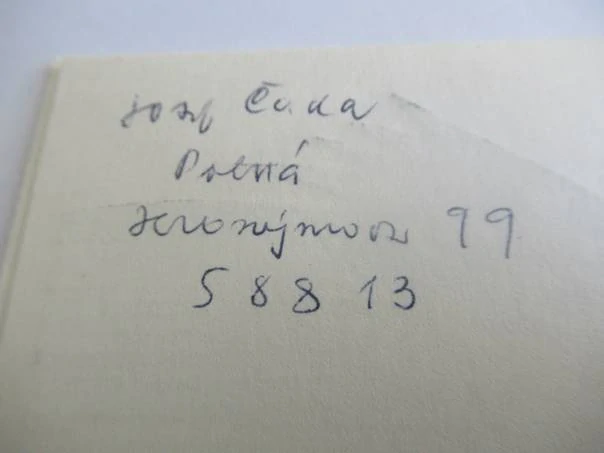 Josef Čada
Polná
Jeronýmova 99
588 13